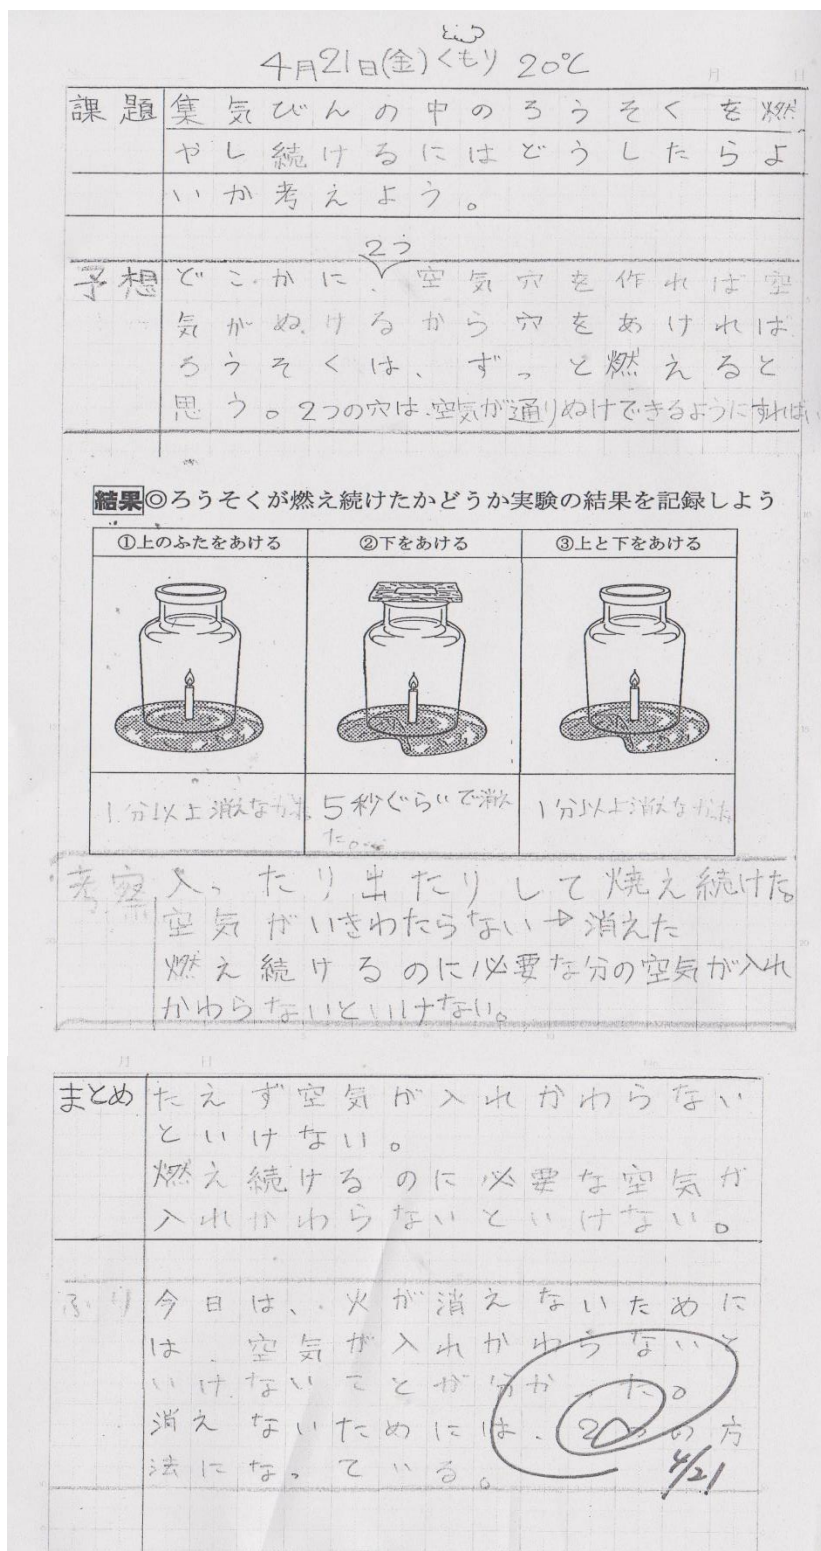 4月21日(金)くもり 20℃
課題 集気びんの中のろうそくを燃
やし続けるにはどうしたらよ
いか考えよう。
2つ
予想 どこかに、空気穴を作れば空
気がぬけるから穴をあければ
ろうそくは、ずっと燃えると
思う。2つの穴は、空気が通りぬけできるようにすればい
結果◎ろうそくが燃え続けたかどうか実験の結果を記録しよう
①上のふたをあける ②下をあける ③上と下をあける
1分以上消えなかった 5秒ぐらいで消え 1分以上消えなかった
た。
考察 入ったり出たりして焼え続けた。
空気がいきわたらない→消えた
燃え続けるのに必要な分の空気が入れ
かわらないといけない。
まとめ たえず空気が入れかわらない
といけない。
燃え続けるのに必要な空気が
入れかわらないといけない。
ふり 今日は、火が消えないために
は、空気が入れかわらないと
いけないことが分かった。
消えないためには、2つの方
法になっている。
4/21